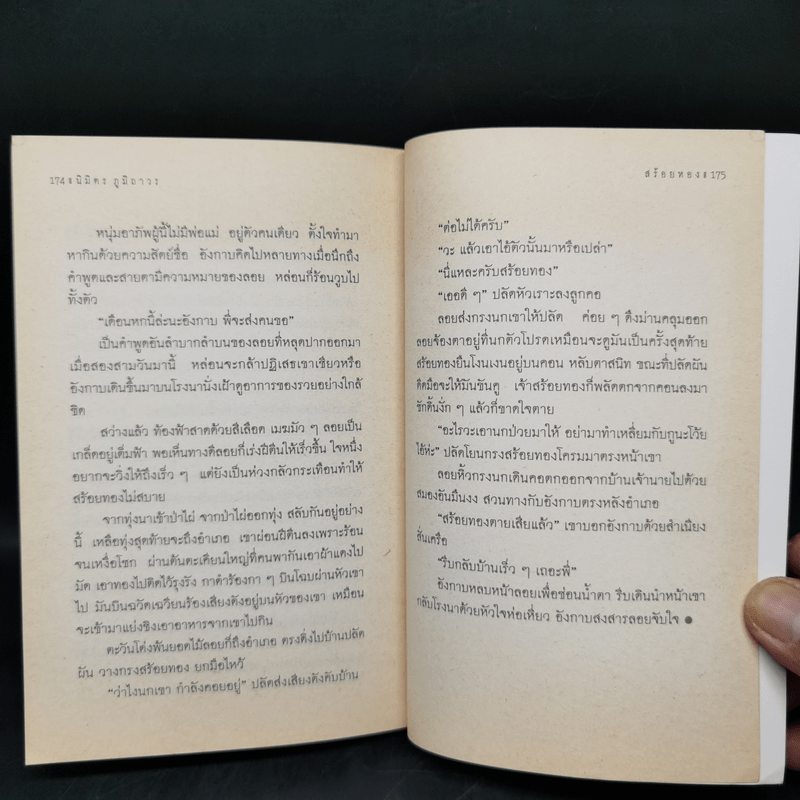 174 ๏ นิมิตร ภูมิถาวร
หนุ่มอาภัพผู้นี้ไม่มีพ่อแม่ อยู่ตัวคนเดียว ตั้งใจทำมา
หากินด้วยความสัตย์ซื่อ อังกาบคิดไปหลายทางเมื่อนึกถึง
คำพูดและสายตามีความหมายของลอย หล่อนก็ร้อนวูบไป
ทั้งตัว
“เดือนหกนี้ล่ะนะอังกาบ พี่จะส่งคนขอ”
เป็นคำพูดอันลำบากลำบนของลอยที่หลุดปากออกมา
เมื่อสองสามวันมานี้ หล่อนจะกล้าปฏิเสธเขาเชียวหรือ
อังกาบเดินขึ้นมาบนโรงนานั่งเฝ้าดูอาการของรวยอย่างใกล้
ชิด
สว่างแล้ว ท้องฟ้าสาดด้วยสีเลือด เมฆมัว ๆ ลอยเป็น
เกล็ดอยู่เต็มฟ้า พอเห็นทางดีลอยก็เร่งฝีตีนให้เร็วขึ้น ใจหนึ่ง
อยากจะวิ่งให้ถึงเร็ว ๆ แต่ยังเป็นห่วงกลัวกระเทือนทำให้
สร้อยทองไม่สบาย
จากทุ่งนาเข้าป่าไผ่ จากป่าไผ่ออกทุ่ง สลับกันอยู่อย่าง
นี้ เหลือทุ่งสุดท้ายจะถึงอำเภอ เขาผ่อนฝีตีนลงเพราะร้อน
จนเหงื่อโชก ผ่านต้นตะเคียนใหญ่ที่คนพากันเอาผ้าแดงไป
มัด เอาทองไปติดไว้รุงรัง กาดำร้องกา ๆ บินโฉบผ่านหัวเขา
ไป มันบินฉวัดเฉวียนร้องเสียงดังอยู่บนหัวของเขา เหมือน
จะเข้ามาแย่งชิงเอาอาหารจากเขาไปกิน
ตะวันโด่งพ้นยอดไม้ลอยก็ถึงอำเภอ ตรงดิ่งไปบ้านปลัด
ผัน วางกรงสร้อยทอง ยกมือไหว้
“ว่าไงนกเขา กำลังคอยอยู่” ปลัดส่งเสียงดังคับบ้าน
สร้อยทอง ๏ 175
“ต่อไม่ได้ครับ”
“วะ แล้วเอาไอ้ตัวนั้นมาหรือเปล่า”
“นี่แหละครับสร้อยทอง”
“เออดี ๆ” ปลัดหัวเราะลงลูกคอ
ลอยส่งกรงนกเขาให้ปลัด ค่อย ๆ ดึงม่านคลุมออก
ลอยจ้องตาอยู่ที่นกตัวโปรดเหมือนจะดูมันเป็นครั้งสุดท้าย
สร้อยทองยืนโงนเงนอยู่บนคอน หลับตาสนิท ขณะที่ปลัดผัน
ดีดมือจะให้มันขันคู เจ้าสร้อยทองก็พลัดตกจากคอนลงมา
ชักดิ้นงั่ก ๆ แล้วก็ขาดใจตาย
“อะไรวะเอานกป่วยมาให้ อย่ามาทำเหลี่ยมกับกูนะโว้ย
ไอ้ห่ะ” ปลัดโยนกรงสร้อยทองโครมมาตรงหน้าเขา
ลอยหิ้วกรงนกเดินคอตกออกจากบ้านเจ้านายไปด้วย
สมองอันมึนงง สวนทางกับอังกาบตรงหลังอำเภอ
“สร้อยทองตายเสียแล้ว” เขาบอกอังกาบด้วยสำเนียง
สั่นเครือ
“รีบกลับบ้านเร็ว ๆ เถอะพี่”
อังกาบหลบหน้าลอยเพื่อซ่อนน้ำตา รีบเดินนำหน้าเขา
กลับโรงนาด้วยหัวใจห่อเหี่ยว อังกาบสงสารลอยจับใจ ●